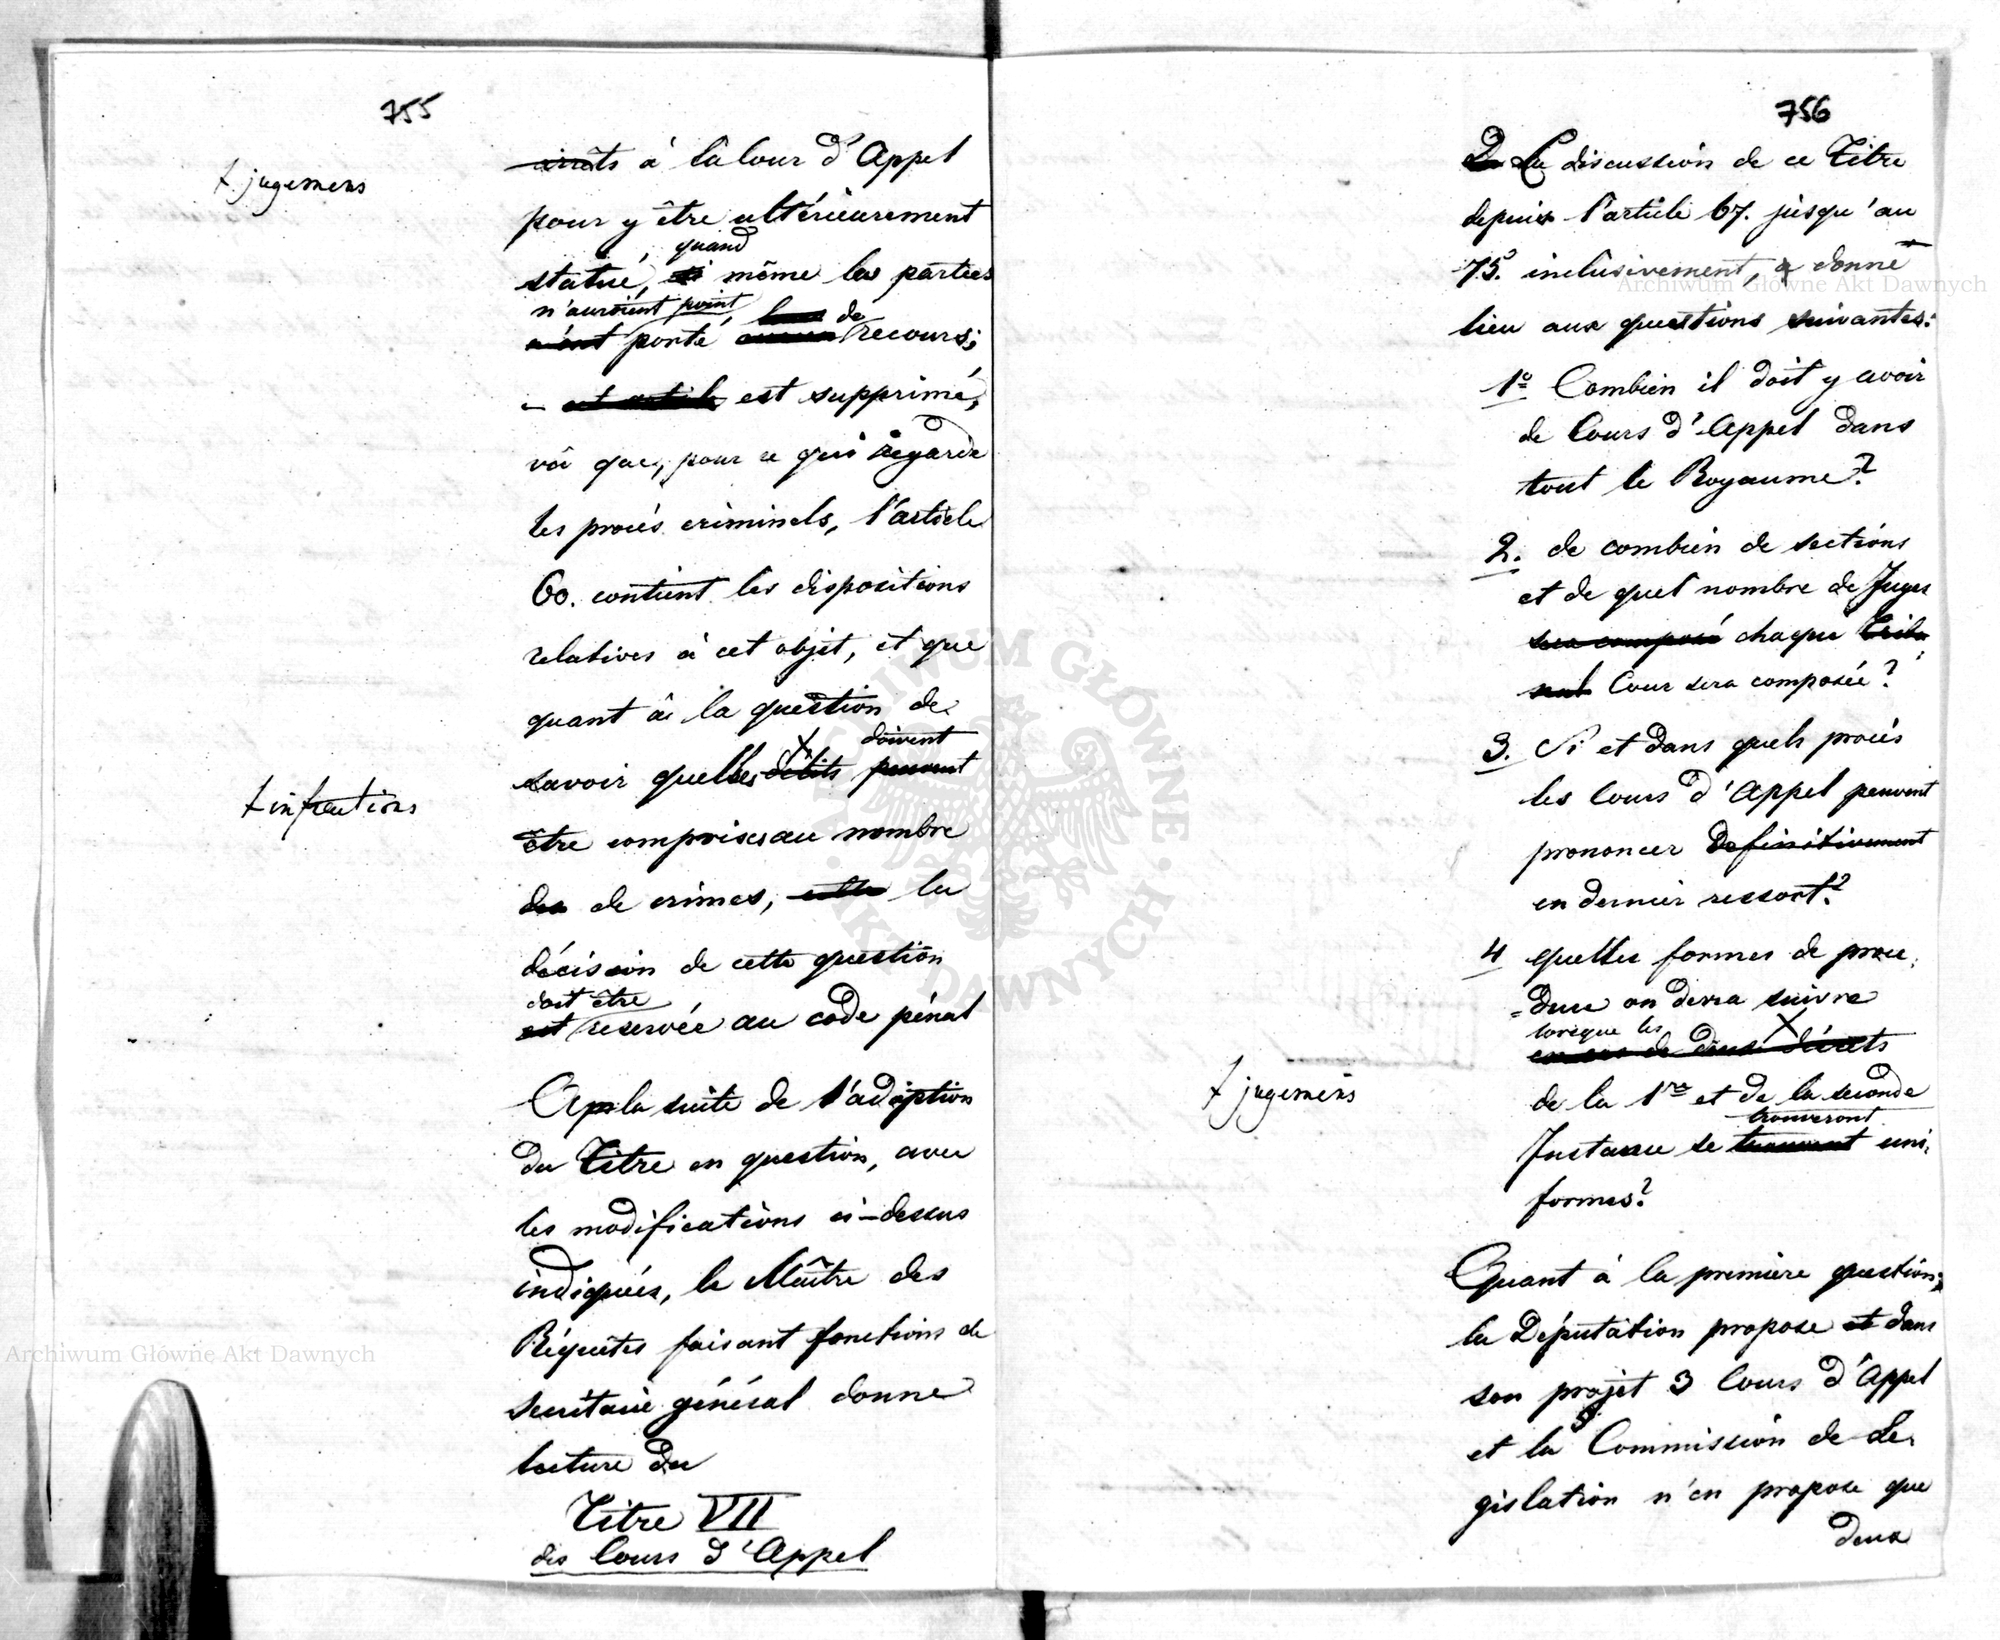 755
+ jugemens
~~arrêts~~ à la Cour d'Appel
pour y être ultérieurement
quand
statué, ~~si~~ même les parties
n'auroient point, de
~~n'ont~~ porté recours;
– ~~cet article~~ est supprimé,
vû que, pour ce qui regarde
les procès criminels, l'article
60. contient les dispositions
relatives à cet objet, et que
quant à la question de
+ doivent
savoir quelles ~~délits~~ ~~peuvent~~
+ infractions
être comprises au nombre
~~des~~ de crimes, ~~cette~~ la
décision de cette question
doit être
~~est~~ reservée au code pénal
A la suite de l'adoption
du Titre en question, avec
les modifications ci-dessus
indiquées, le Maître des
Réquêtes faisant fonctions de
Secrétaire général donne
lecture du
Titre VII
des Cours d'Appel
756
La discussion de ce Titre
depuis l'article 67. jusqu'au
75. inclusivement, a donné
lieu aux questions suivantes:
1º Combien il doit y avoir
de Cours d'Appel dans
tout le Royaume?
2. de combien de sections
et de quel nombre de Juges
~~sera composé~~ chaque ~~Tribu~~
~~nal~~ Cour sera composée?
3. Si et dans quels procès
les Cours d'Appel peuvent
prononcer ~~definitivement~~
en dernier ressort?
4 quelles formes de procé
=dure on devra suivre
lorsque les +
~~en cas de deux décrets~~
+ jugemens
de la 1re et de la seconde
trouveront
Instance se ~~trouvent~~ uni
formes?
Quant à la première question,
la Députation propose ~~et~~ dans
son projet 3 Cours d'Appel
et la Commission de Le
gislation n'en propose que
deux
Archiwum Główne Akt Dawnych
Archiwum Główne Akt Dawnych
ARCHIWUM GŁÓWNE AKT DAWNYCH